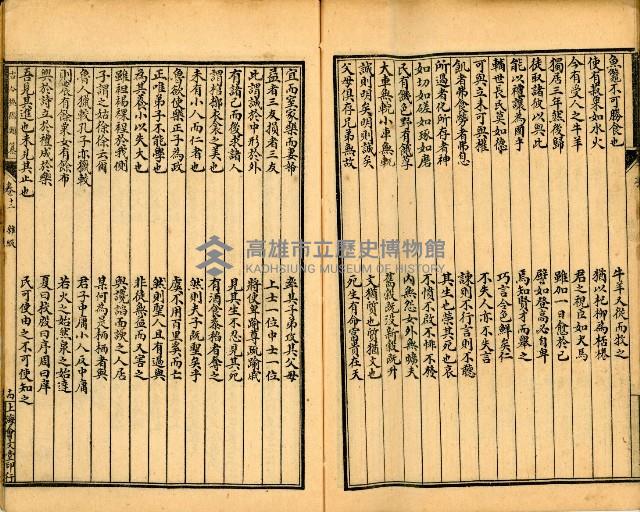 魚鼈不可勝食也
使有菽粟如水火
今有受人之牛羊
獨居三年然後歸
徒取諸彼以與此
能以禮讓為國乎
輔世長民莫如德
可與立未可與權
飢者弗食勞者弗息
所過者化所存者神
如切如磋如琢如磨
民有饑色野有餓莩
大車無輗小車無軏
誠則明矣明則誠矣
父母俱存兄弟無故
牛羊又從而牧之
猶以杞柳為桮棬
君之視臣如犬馬
雖加一日愈於已
譬如登高必自卑
焉知賢才而舉之
巧言令色鮮矣仁
不失人亦不失言
諫則不行言則不聽
其生也榮其死也哀
不憤不啟不悱不發
內無怨女外無曠夫
舊穀既沒新穀既升
文猶質也質猶文也
死生有命富貴在天
宜而室家樂而妻帑
益者三友損者三友
此謂誠於中形於外
有諸己而後求諸人
未有小人而仁者也
魯欲使樂正子為政
正唯弟子不能學也
為其養小以失大也
雖袒裼裸裎於我側
子謂之姑徐徐云爾
魯人獵較孔子亦獵較
則農有餘粟女有餘布
興於詩立於禮成於樂
吾見其進也未見其止也
率其子弟攻其父母
上士一位中士一位
將使卑踰尊疏踰戚
見其生不忍見其死
有酒食豢稻者奪之
然則夫子既聖矣乎
虞不用百里奚而亡
然則聖人且有過與
非徒無益而又害之
與讒諂面諛之人居
某何為是栖栖者與
君子中庸小人反中庸
若火之始然泉之始達
夏曰校殷曰序周曰庠
民可使由之不可使知之
卷十二
雜綴
上海會文堂印行
高雄市立歷史博物館
KAOHSIUNG MUSEUM OF HISTORY